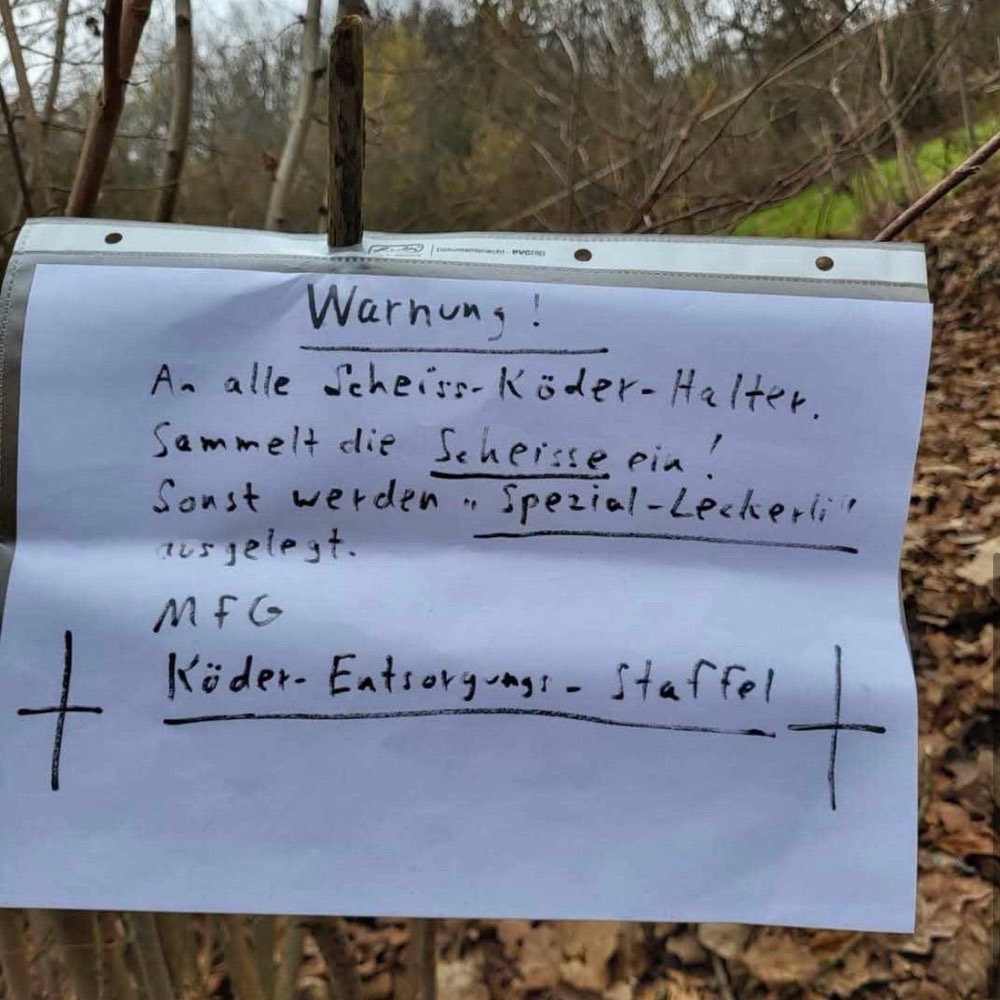 Dokumentenecht - PVC
Warnung!
An alle Scheiss-Köder-Halter.
Sammelt die Scheisse ein!
Sonst werden „Spezial-Leckerli"
ausgelegt.
MfG
Köder-Entsorgungs-Staffel